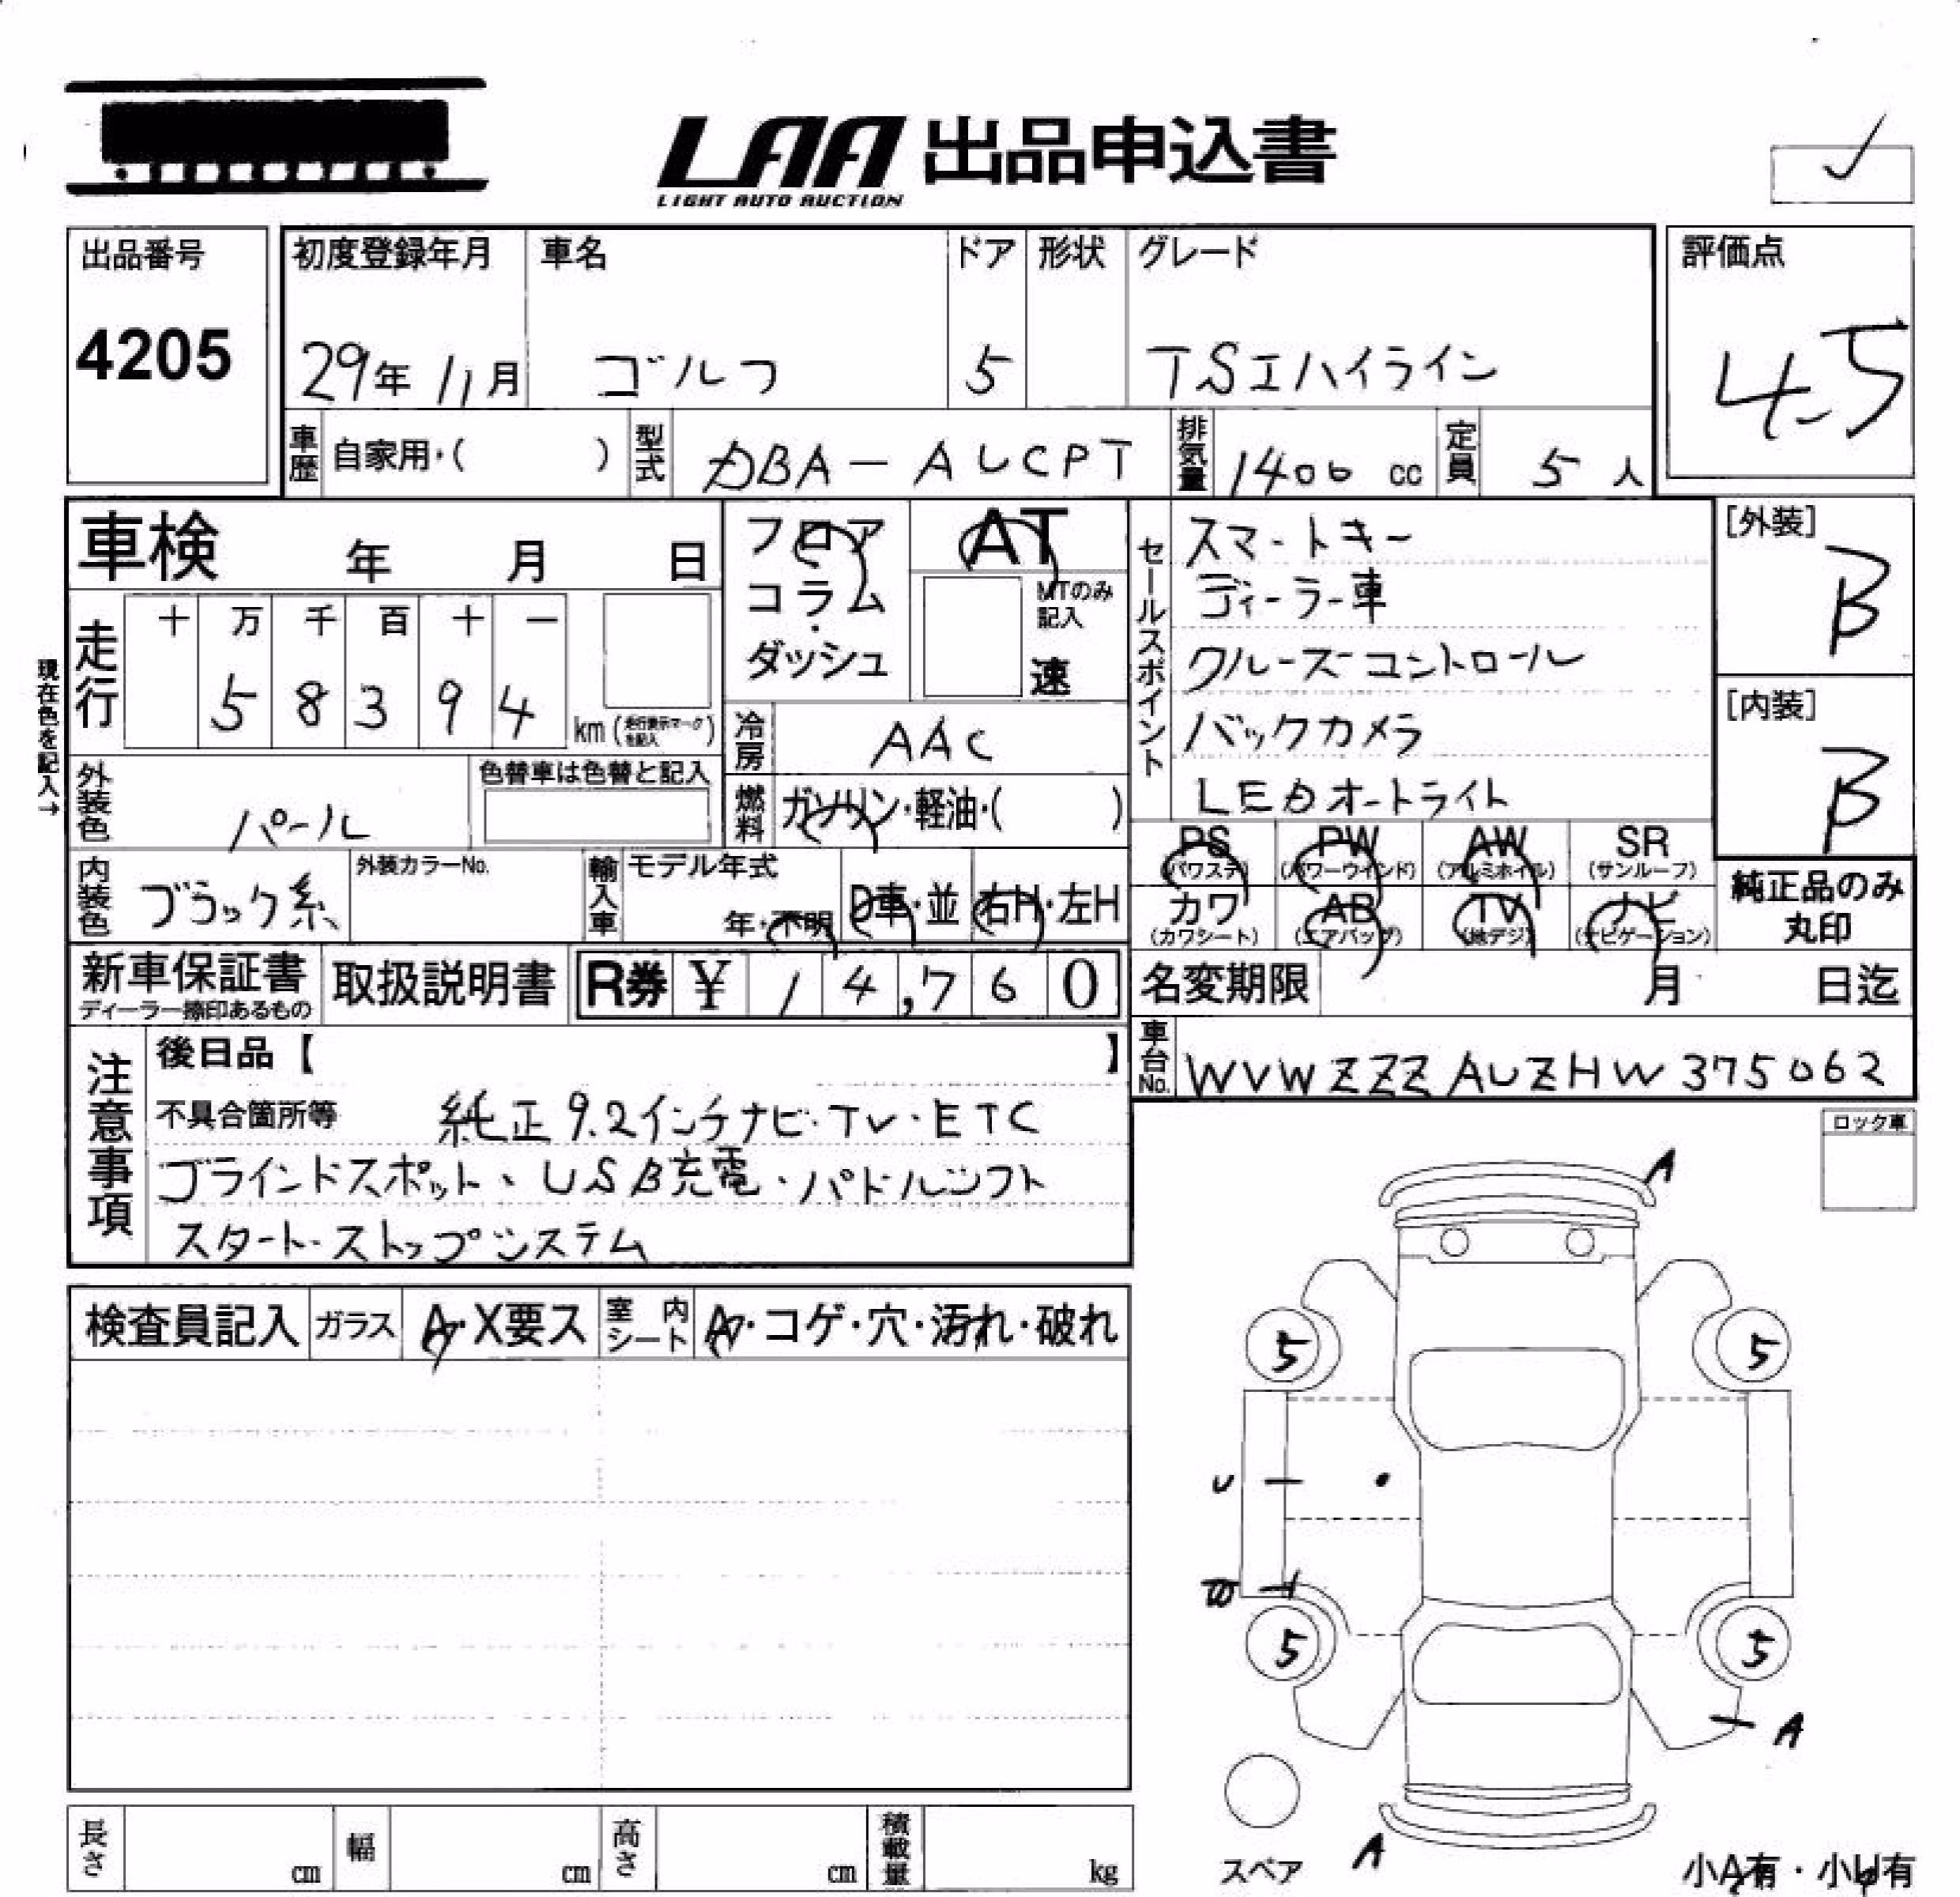 LAA 出品申込書
LIGHT AUTO AUCTION
出品番号
4205
初度登録年月 車名 ドア 形状 グレード
29年 11月 ゴルフ 5 TSIハイライン
評価点
4.5
車歴 自家用・( ) 型式 DBA-AUCPT 排気量 1400 cc 定員 5 人
車検 年 月 日
フロア
コラム
・
ダッシュ
AT
MTのみ
記入
速
セールスポイント
スマートキー
ディーラー車
クルーズコントロール
バックカメラ
LEDオートライト
[外装]
B
[内装]
B
現在色を記入→
走行
十 万 千 百 十 一
5 8 3 9 4
km (走行表示マークを記入)
冷房 AAC
外装色 パール
色替車は色替と記入
燃料 ガソリン・軽油・( )
PS PW AW SR
(パワステ) (パワーウインド) (アルミホイル) (サンルーフ)
カワ AB TV ナビ
(カワシート) (エアバッグ) (地デジ) (ナビゲーション)
純正品のみ
丸印
内装色 ブラック系
外装カラーNo.
輸入車
モデル年式
年・不明
D車・並
右H・左H
新車保証書
ディーラー捺印あるもの
取扱説明書
R券 ¥ 1 4,7 6 0
名変期限 月 日迄
車台No. WVWZZZAUZHW375062
注意事項
後日品【 】
不具合箇所等 純正9.2インチナビ・TV・ETC
ブラインドスポット、USB充電・パドルシフト
スタート・ストップシステム
ロック車
検査員記入 ガラス A・X要ス 室内シート A・コゲ・穴・汚れ・破れ
A
5 5
U
5 5
A
A
スペア
小A有・小U有
長さ cm 幅 cm 高さ cm 積載量 kg